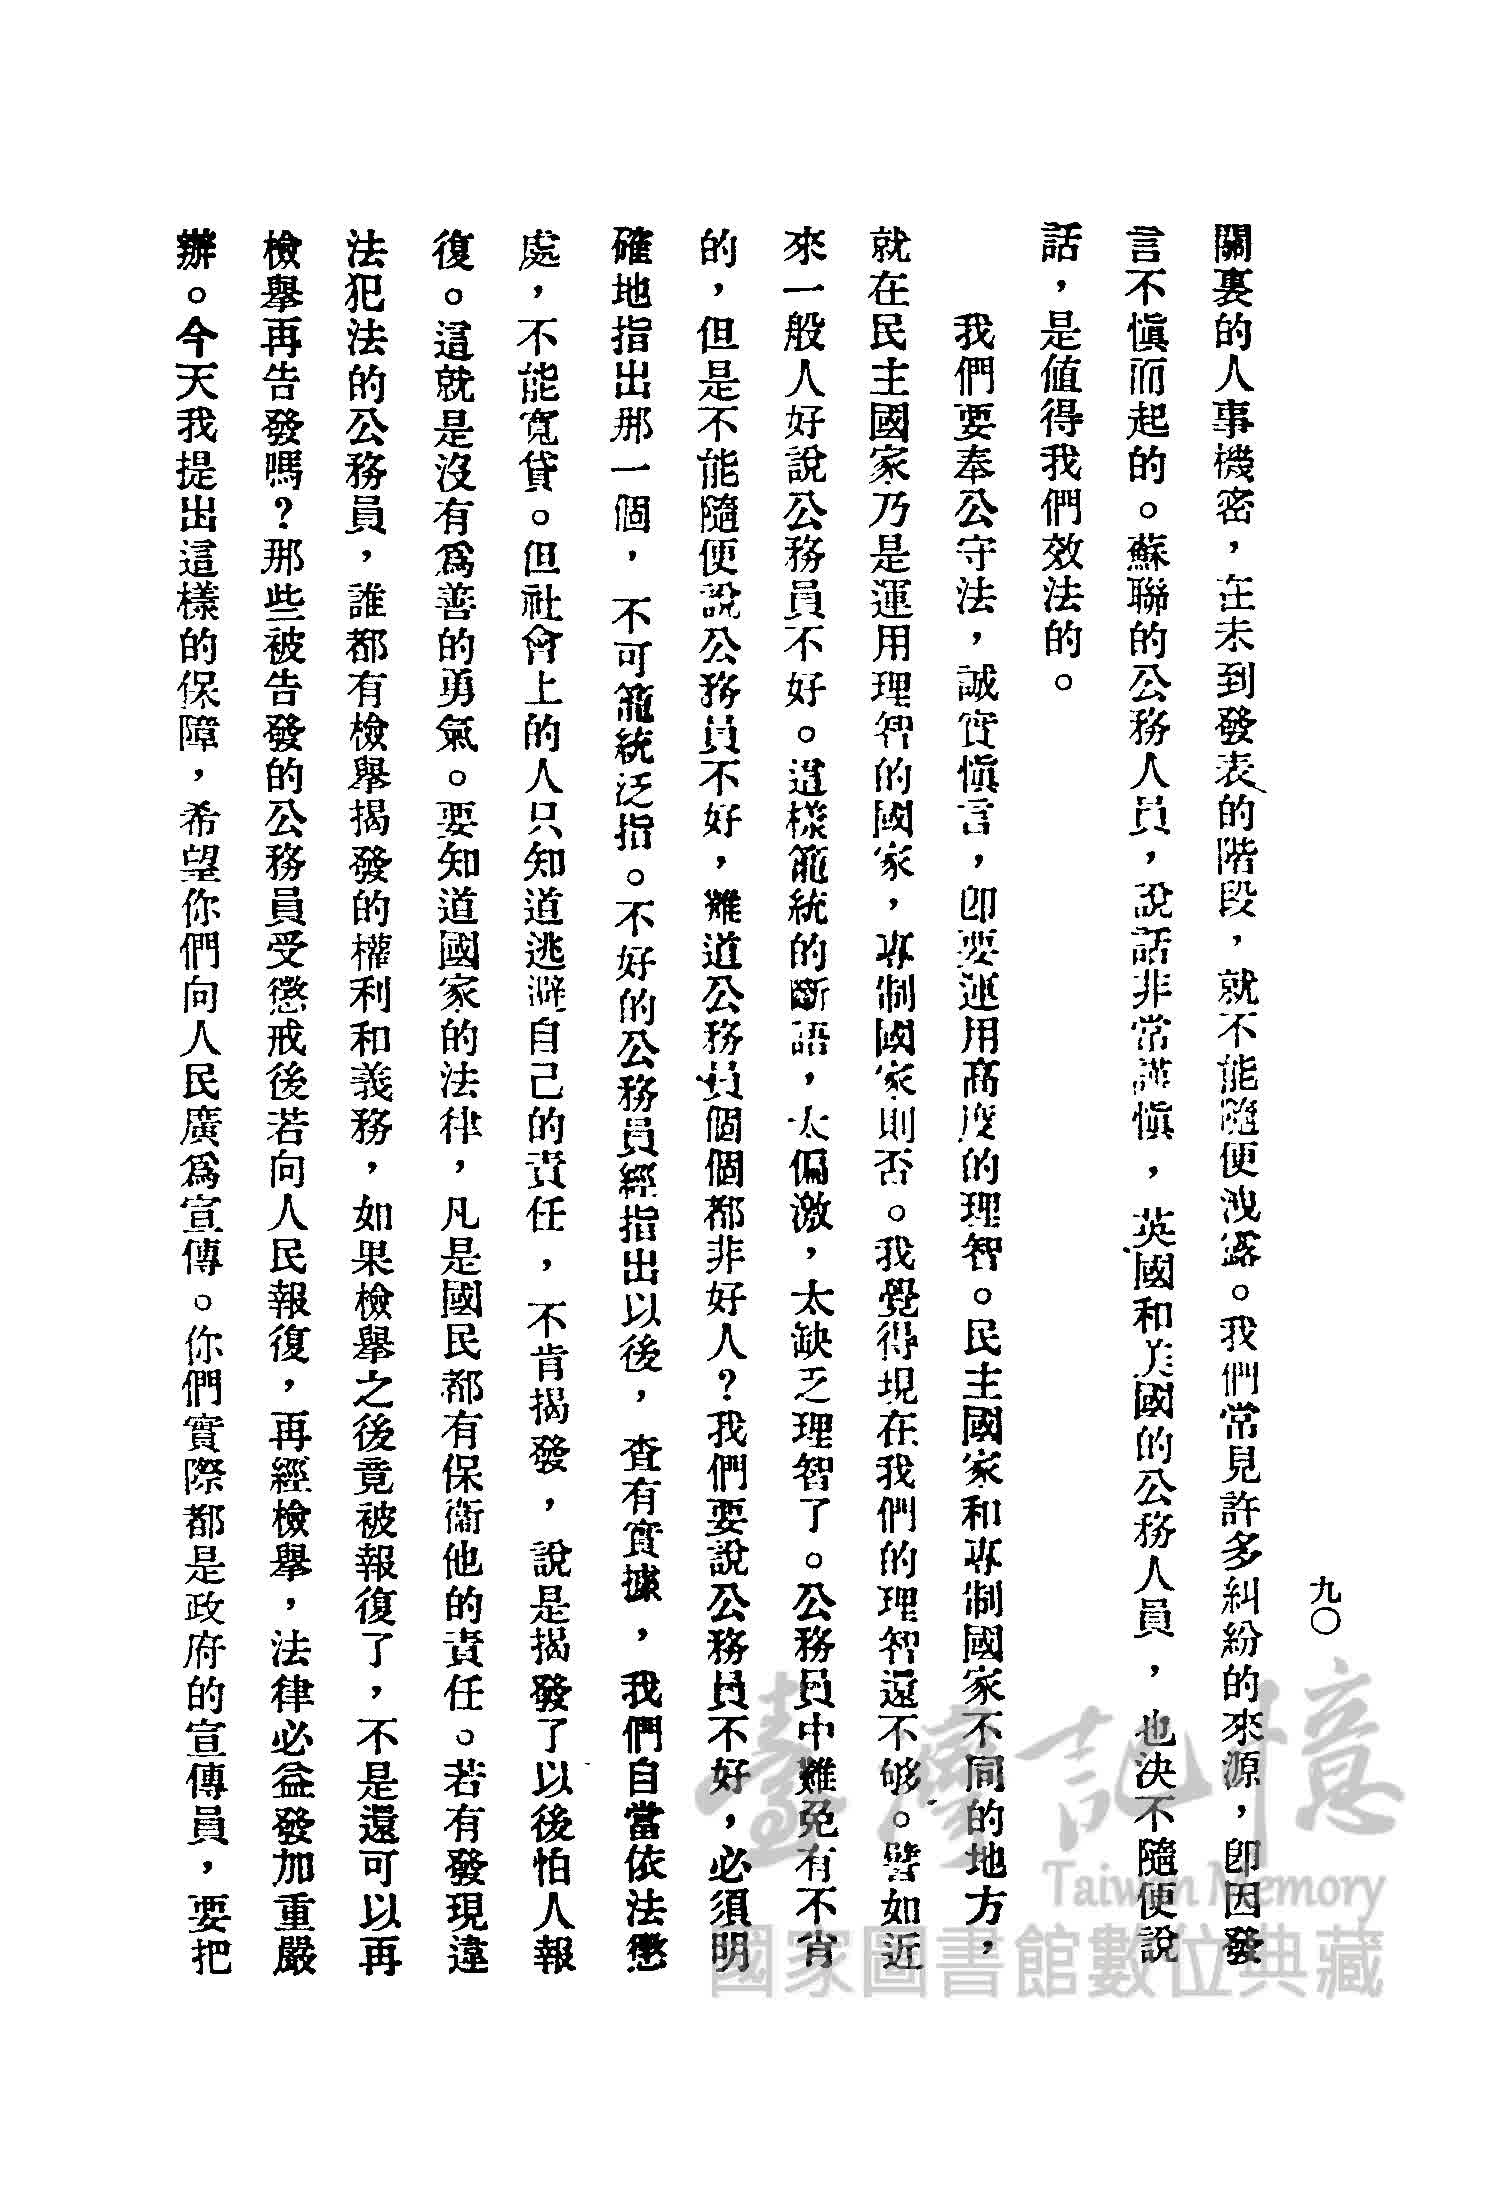 九〇
關裏的人事機密，在未到發表的階段，就不能隨便洩露。我們常見許多糾紛的來源，卽因發
言不愼而起的。蘇聯的公務人員，說話非常謹愼，英國和美國的公務人員，也決不隨便說
話，是值得我們效法的。
我們要奉公守法，誠實愼言，卽要運用高度的理智。民主國家和專制國家不同的地方，
就在民主國家乃是運用理智的國家，專制國家則否。我覺得現在我們的理智還不够。譬如近
來一般人好說公務員不好。這樣籠統的斷語，太偏激，太缺乏理智了。公務員中難免有不肖
的，但是不能隨便說公務員不好，難道公務員個個都非好人？我們要說公務員不好，必須明
確地指出那一個，不可籠統泛指。不好的公務員經指出以後，查有實據，我們自當依法懲
處，不能寬貸。但社會上的人只知道逃避自己的責任，不肯揭發，說是揭發了以後怕人報
復。這就是沒有爲善的勇氣。要知道國家的法律，凡是國民都有保衞他的責任。若有發現違
法犯法的公務員，誰都有檢舉揭發的權利和義務，如果檢舉之後竟被報復了，不是還可以再
檢舉再告發嗎？那些被告發的公務員受懲戒後若向人民報復，再經檢舉，法律必益發加重嚴
辦。今天我提出這樣的保障，希望你們向人民廣爲宣傳。你們實際都是政府的宣傳員，要把
臺灣記憶
Taiwan Memory
國家圖書館數位典藏